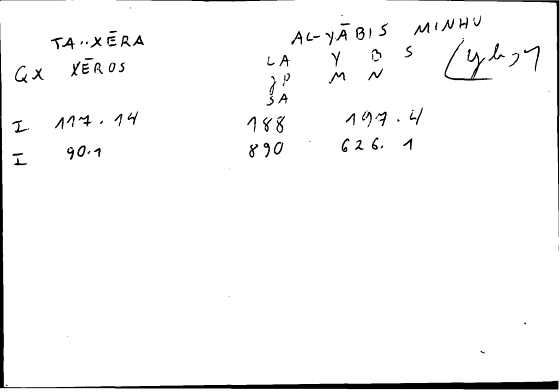 TA..XĒRA AL-YĀBIS MINHU
GX XĒROS LA Y B S
M N
SA
I 117.14 188 197.4
I 90.1 890 626.1